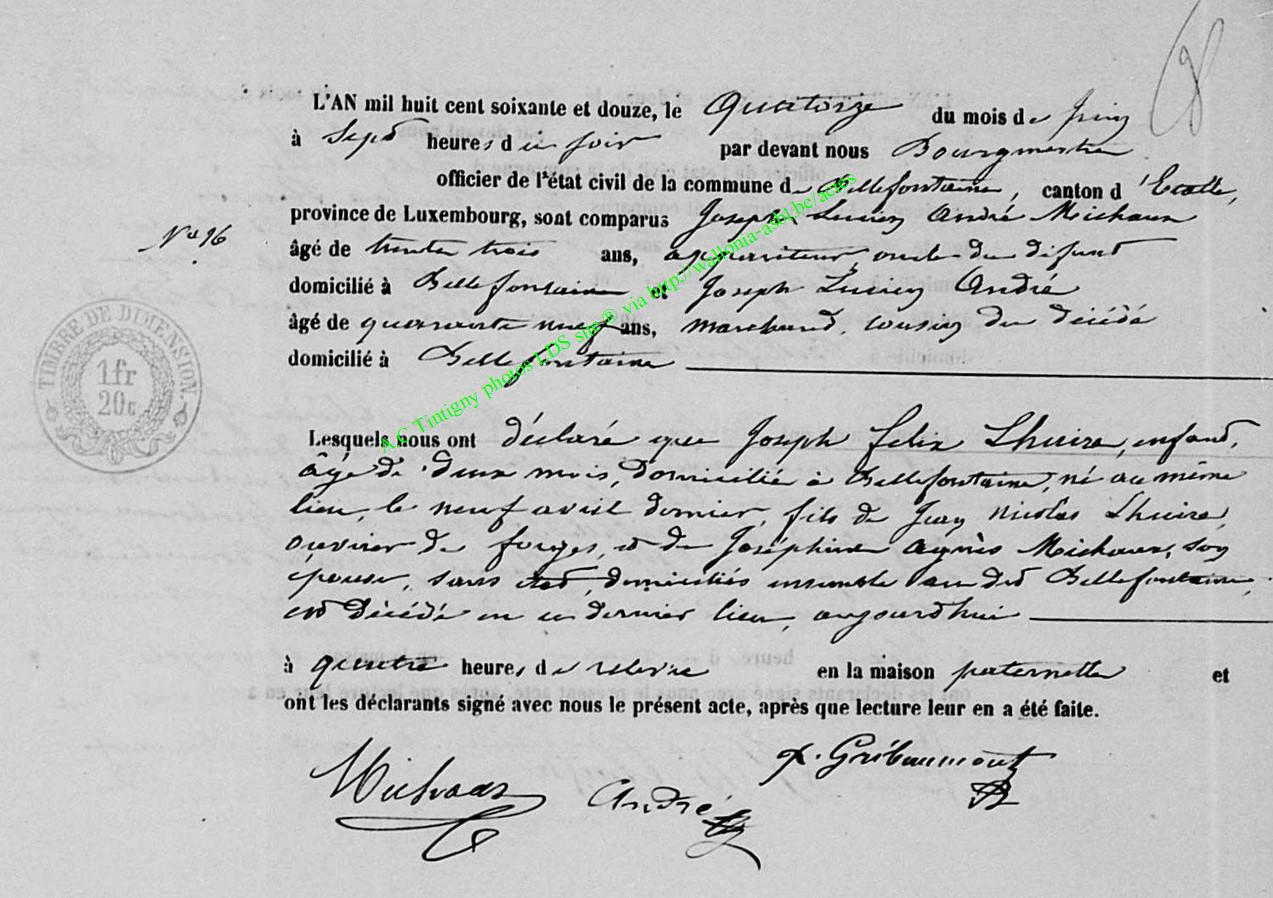 L'AN mil huit cent soixante et douze, le Quatorze du mois de Juin
à Sept heures du soir par devant nous Bourgmestre
officier de l'état civil de la commune de Bellefontaine, canton d'Etalle,
province de Luxembourg, sont comparus Joseph Lucien André Michaux
N° 16
âgé de trente trois ans, appariteur oncle du défunt
domicilié à Bellefontaine et Joseph Lucien André
âgé de quarante neuf ans, marchand, cousin du décédé
domicilié à Bellefontaine
TIMBRE DE DIMENSION
1 fr
20 c
A.C Tintigny photos LDS site® via http://wallonia-asbl.be/actes
Lesquels nous ont déclaré que Joseph Felix Lhuire, enfant,
âgé de deux mois, domicilié à Bellefontaine, né au même
lieu, le neuf avril dernier, fils de Jean Nicolas Lhuire,
ouvrier de forges, et de Joséphine Agnès Michaux, son
épouse, sans état, domiciliés ensemble au dit Bellefontaine,
est décédé en ce dernier lieu, aujourdhui
à quatre heures de relevée en la maison paternelle et
ont les déclarants signé avec nous le présent acte, après que lecture leur en a été faite.
Michaux André Gribaumont